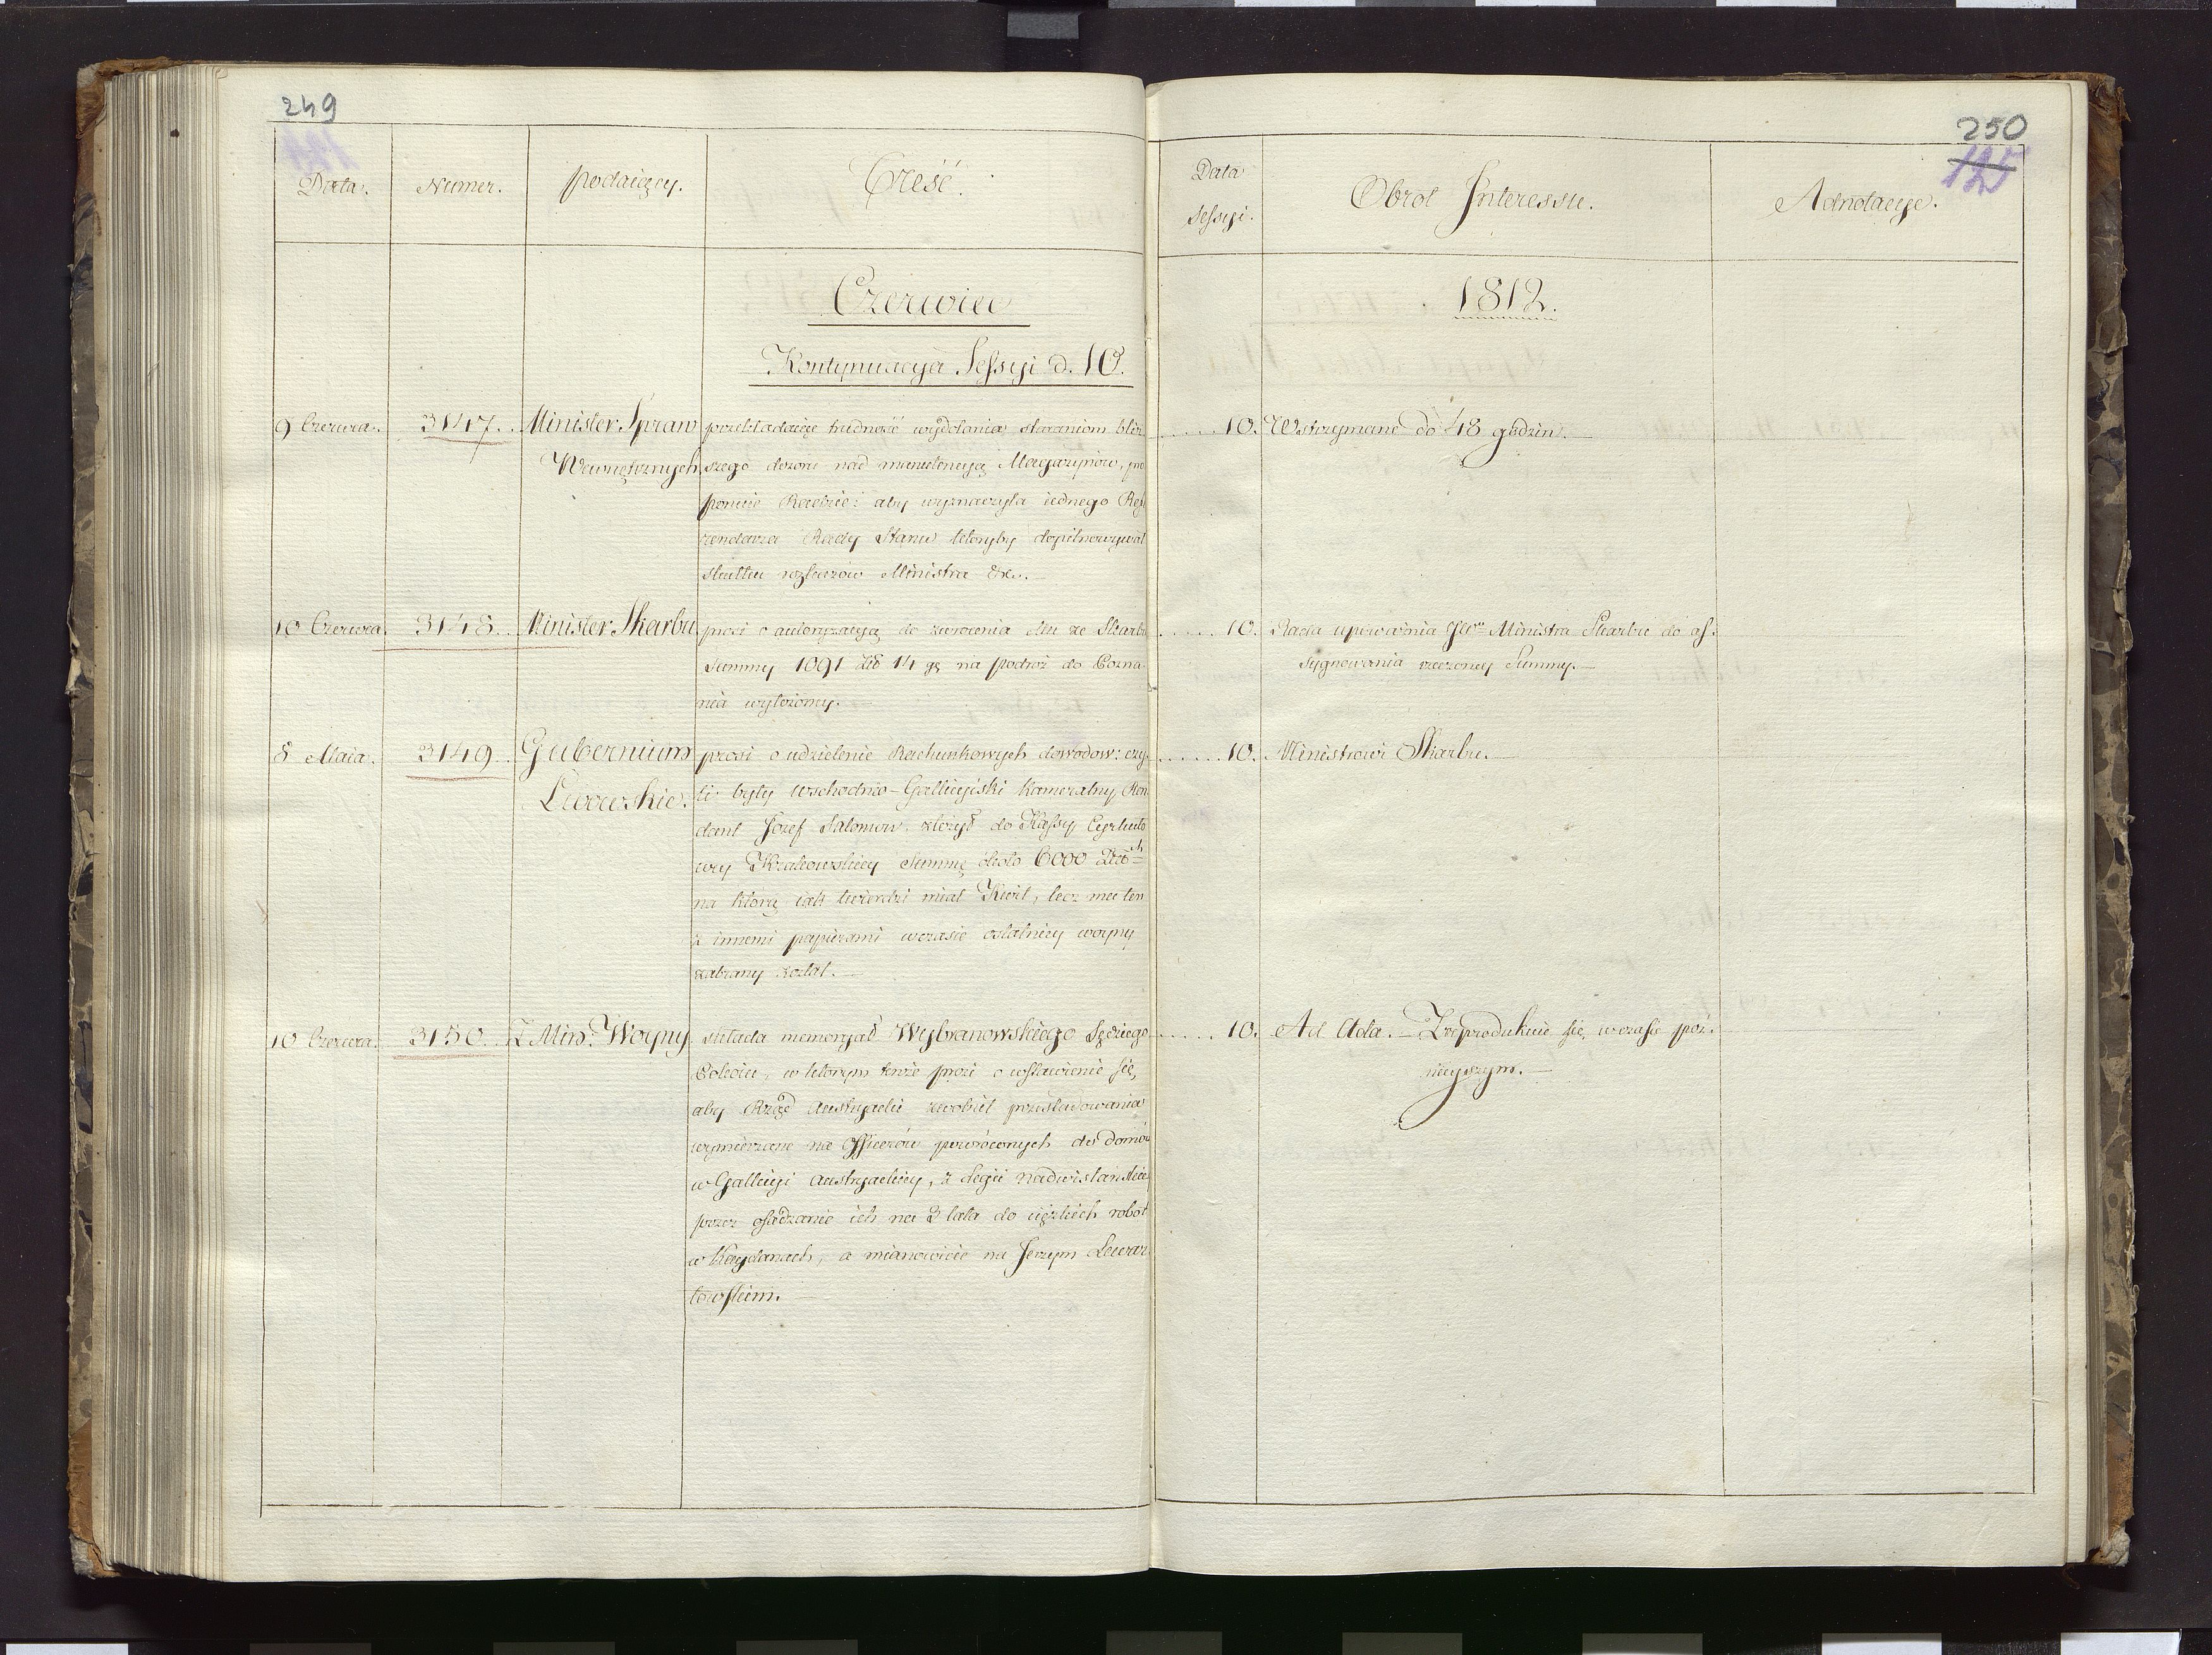 249
Data.
Numer.
podaiący.
Treść.
Czerwiec
Kontynuacya Sessyi d. 10.
9 Czerwca.
3147.
Minister Spraw
Wewnętrznych
przekładaiąc trudność wydołania staraniom bliż
szego dozoru nad manutencyą Magazynów, pro
ponuie Radzie: aby wyznaczyła iednego Refe
rendarza Rady Stanu któryby dopilnowywał
skutku rozkazów Ministra &c. —
10 Czerwca
3148.
Minister Skarbu
prosi o autoryzacyą do zwrócenia Mu ze Skarbu
Summy 1091 Zł 14 gr na podróż do Pozna
nia wyłożony. —
8 Maia.
3149.
Gubernium
Lwowskie.
prosi o udzielenie Rachunkowych dowodow: czy
li były wschodnio-Gallicyiski Kameralny Ren
dant Jozef Salomon złożył do Kassy Cyrkuło
wey Krakowskiey Summę około 6000 Złt
na którą iak twierdzi miał Kwit, lecz mu ten
z innemi papierami wczasie ostatniey woyny
zabrany został. —
10 Czerwca.
3150.
Z. Min. Woyny
składa memoryał Wybranowskiego Sędziego
Pokoiu, w ktorym tenże prosi o wstawienie się,
aby Rząd Austryacki zwolnił prześladowania
wymierzane na Officerów powróconych do domów
w Gallicyi Austryackiey, z Legii Nadwislańskiey
przez osadzanie ich na 3 lata do ciężkich robot
w Kaydanach, a mianowicie na Jerzym Lewar
towskim. —
250
125
Data
Sessyi.
Obrot Interessu.
Adnotacye.
1812.
10. Wstrzymano do 48 godzin. —
10. Rada upoważnia JW Ministra Skarbu do as-
sygnowania rzeczoney Summy. —
10. Ministrowi Skarbu. —
10. Ad Acta. — Zreprodukuie się wczasie poź-
nieyszym. —